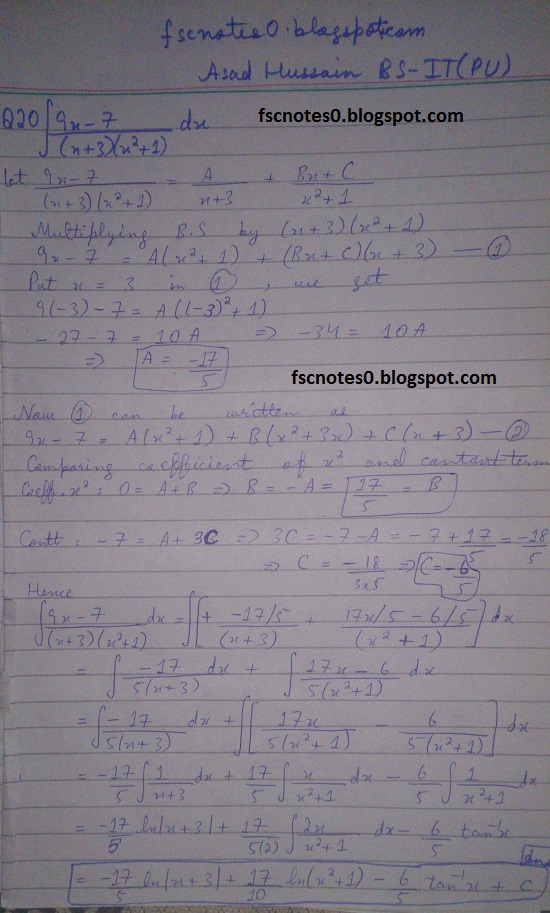 fscnotes0.blogspot.com
Asad Hussain BS-IT(PU)
Q20 ∫ 9x-7 / (x+3)(x²+1) dx
fscnotes0.blogspot.com
let 9x-7 / (x+3)(x²+1) = A / x+3 + Bx+C / x²+1
Multiplying B.S by (x+3)(x²+1)
9x-7 = A(x²+1) + (Bx+C)(x+3) — ①
Put x = 3 in ①, we get
9(-3)-7 = A((-3)²+1)
-27-7 = 10A ⇒ -34 = 10A
⇒ A = -17/5
fscnotes0.blogspot.com
Now ① can be written as
9x-7 = A(x²+1) + B(x²+3x) + C(x+3) — ②
Comparing coefficient of x² and constant term
Coeff. x²: 0 = A+B ⇒ B = -A = 17/5 = B
Contt: -7 = A+3C ⇒ 3C = -7-A = -7+17/5 = -18/5
⇒ C = -18 / 3x5 ⇒ C = -6/5
Hence
∫ 9x-7 / (x+3)(x²+1) dx = ∫[+ -17/5 / (x+3) + 17x/5 - 6/5 / (x²+1)] dx
= ∫ -17 / 5(x+3) dx + ∫ 17x-6 / 5(x²+1) dx
= ∫ -17 / 5(x+3) dx + ∫[17x / 5(x²+1) - 6 / 5(x²+1)] dx
= -17/5 ∫ 1 / x+3 dx + 17/5 ∫ x / x²+1 dx - 6/5 ∫ 1 / x²+1 dx
= -17/5 ln|x+3| + 17 / 5(2) ∫ 2x / x²+1 dx - 6/5 tan⁻¹x
= -17/5 ln|x+3| + 17/10 ln(x²+1) - 6/5 tan⁻¹x + C